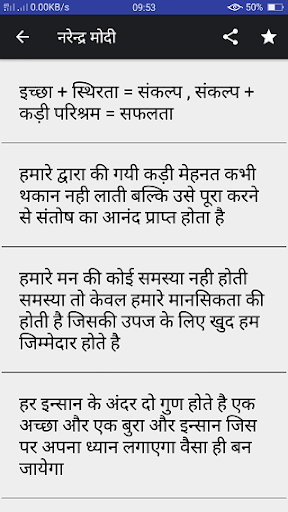 0.00KB/s 09:53 50%
नरेन्द्र मोदी
इच्छा + स्थिरता = संकल्प , संकल्प +
कड़ी परिश्रम = सफलता
हमारे द्वारा की गयी कड़ी मेहनत कभी
थकान नही लाती बल्कि उसे पूरा करने
से संतोष का आनंद प्राप्त होता है
हमारे मन की कोई समस्या नही होती
समस्या तो केवल हमारे मानसिकता की
होती है जिसकी उपज के लिए खुद हम
जिम्मेदार होते है
हर इन्सान के अंदर दो गुण होते है एक
अच्छा और एक बुरा और इन्सान जिस
पर अपना ध्यान लगाएगा वैसा ही बन
जायेगा